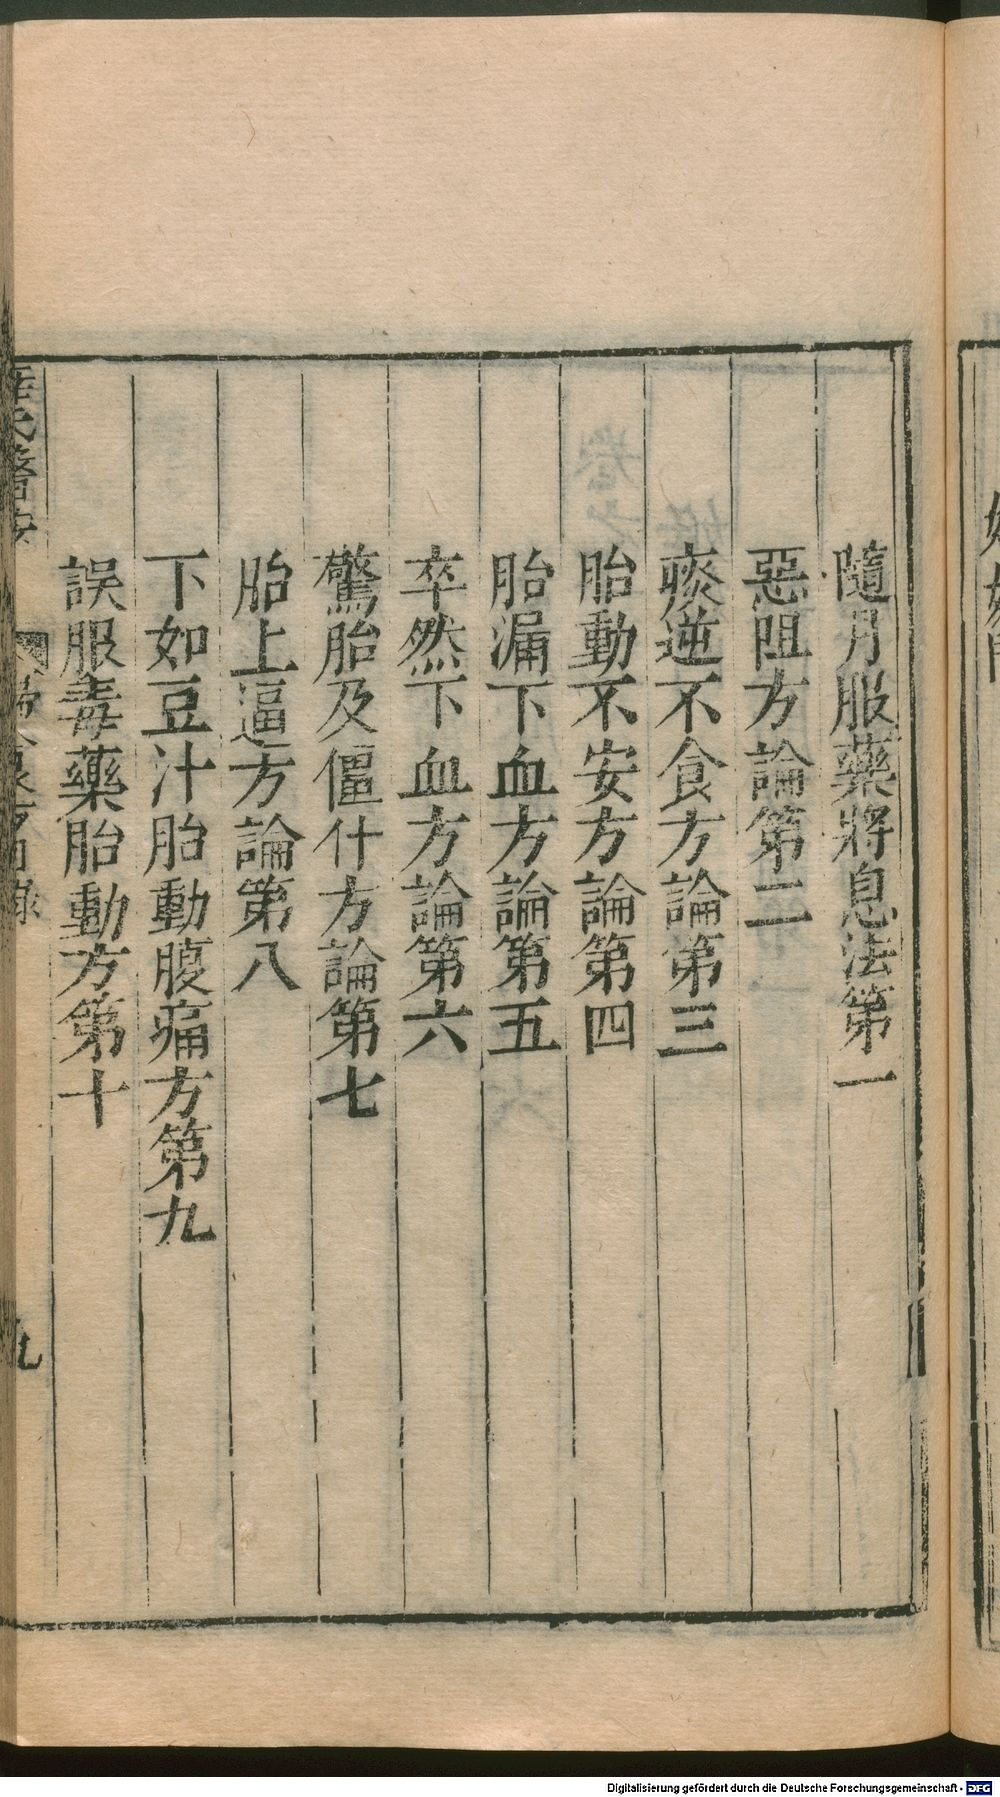 隨月服藥將息法第一
惡阻方論第二
痰逆不食方論第三
胎動不安方論第四
胎漏下血方論第五
卒然下血方論第六
驚胎及僵什方論第七
胎上逼方論第八
下如豆汁胎動腹痛方第九
誤服毒藥胎動方第十
九
Digitalisierung gefördert durch die Deutsche Forschungsgemeinschaft - DFG